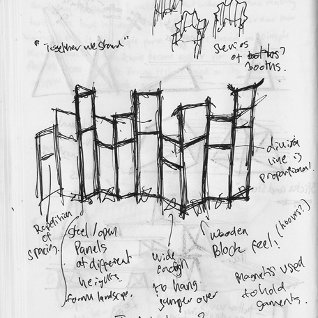 "together we stand"
Series
of booths?
booths.
division
line is
proportional
Repetition
of
spacing.
steel/open
Panels
at different
heights
form landscape.
wide
enough
to hang
jumper over
wooden
Block feel! (
Magnets used
to hold
garments.